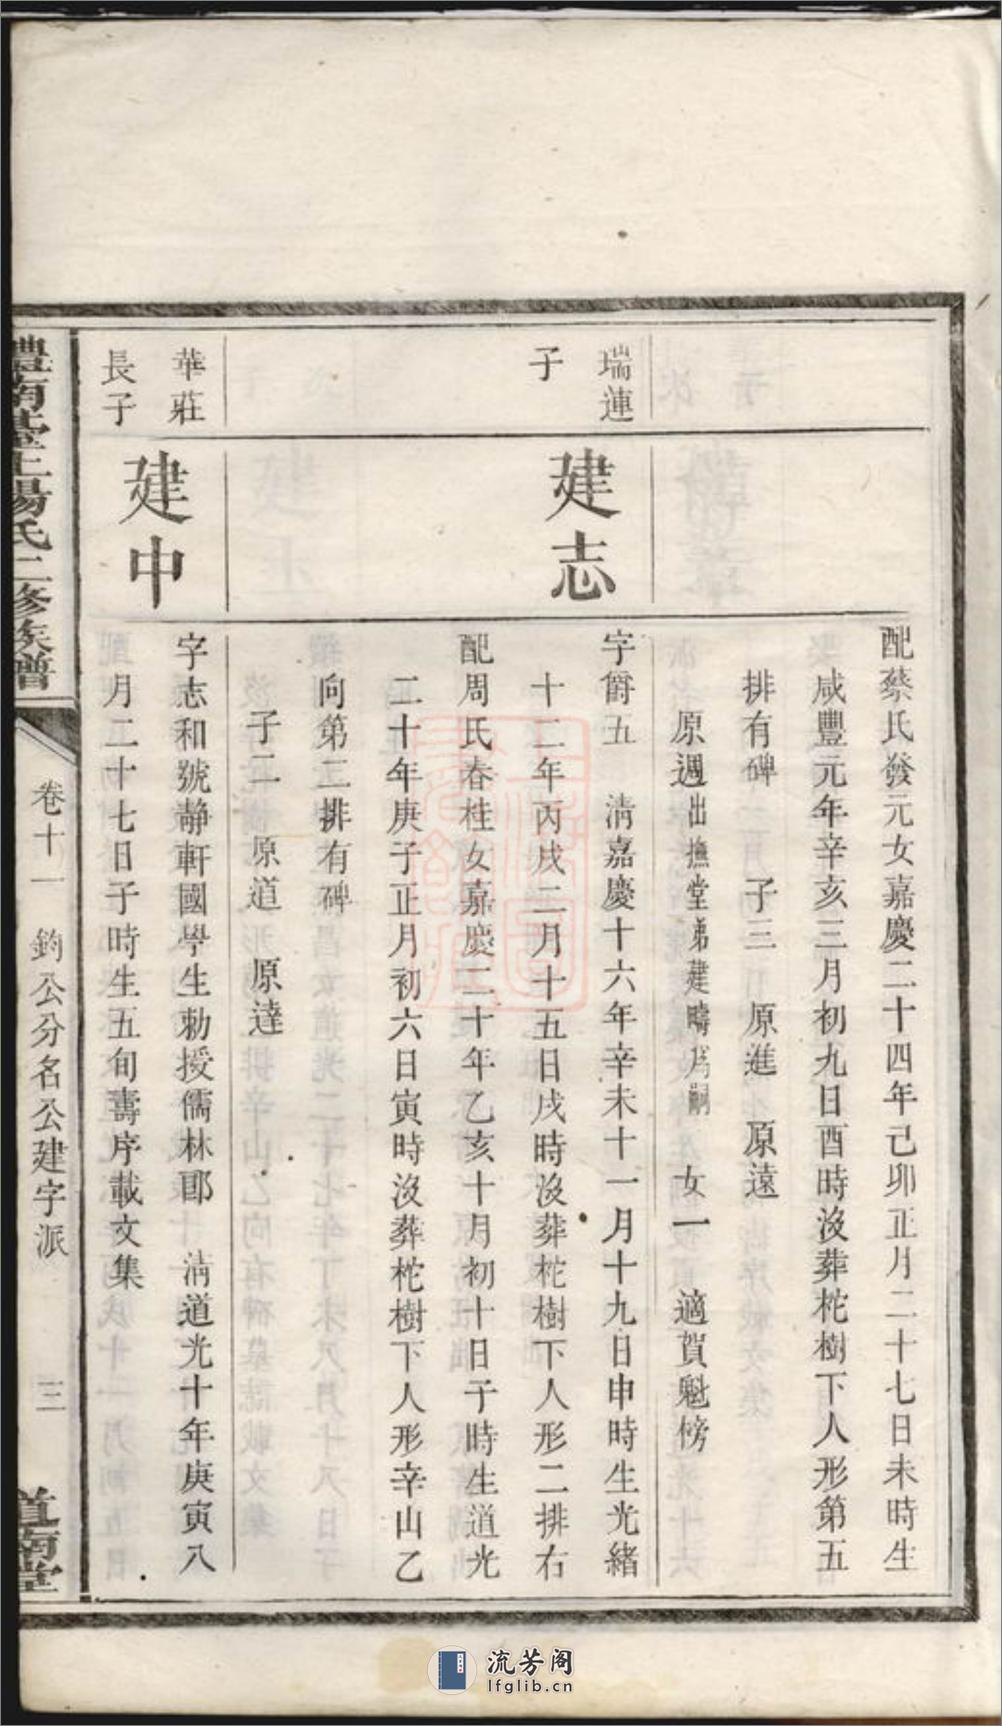 配蔡氏發元女嘉慶二十四年己卯正月二十七日未時生
咸豐元年辛亥三月初九日酉時沒葬柁樹下人形第五
排有碑　子三　原進　原遠
原週出撫堂弟建疇爲嗣　女一　適賀魁榜
瑞蓮
子
建志
字爵五　清嘉慶十六年辛未十一月十九日申時生光緒
十二年丙戌二月十五日戌時沒葬柁樹下人形二排右
配周氏春桂女嘉慶二十年乙亥十月初十日子時生道光
二十年庚子正月初六日寅時沒葬柁樹下人形辛山乙
向第二排有碑
子二　原道　原達
華莊
長子
建中
字志和號靜軒國學生勅授儒林郎　清道光十年庚寅八
月二十七日子時生五旬壽序載文集
上湯氏二修族譜
卷十一　鈞公分名公建字派　三
道南堂
流芳阁
lfglib.cn